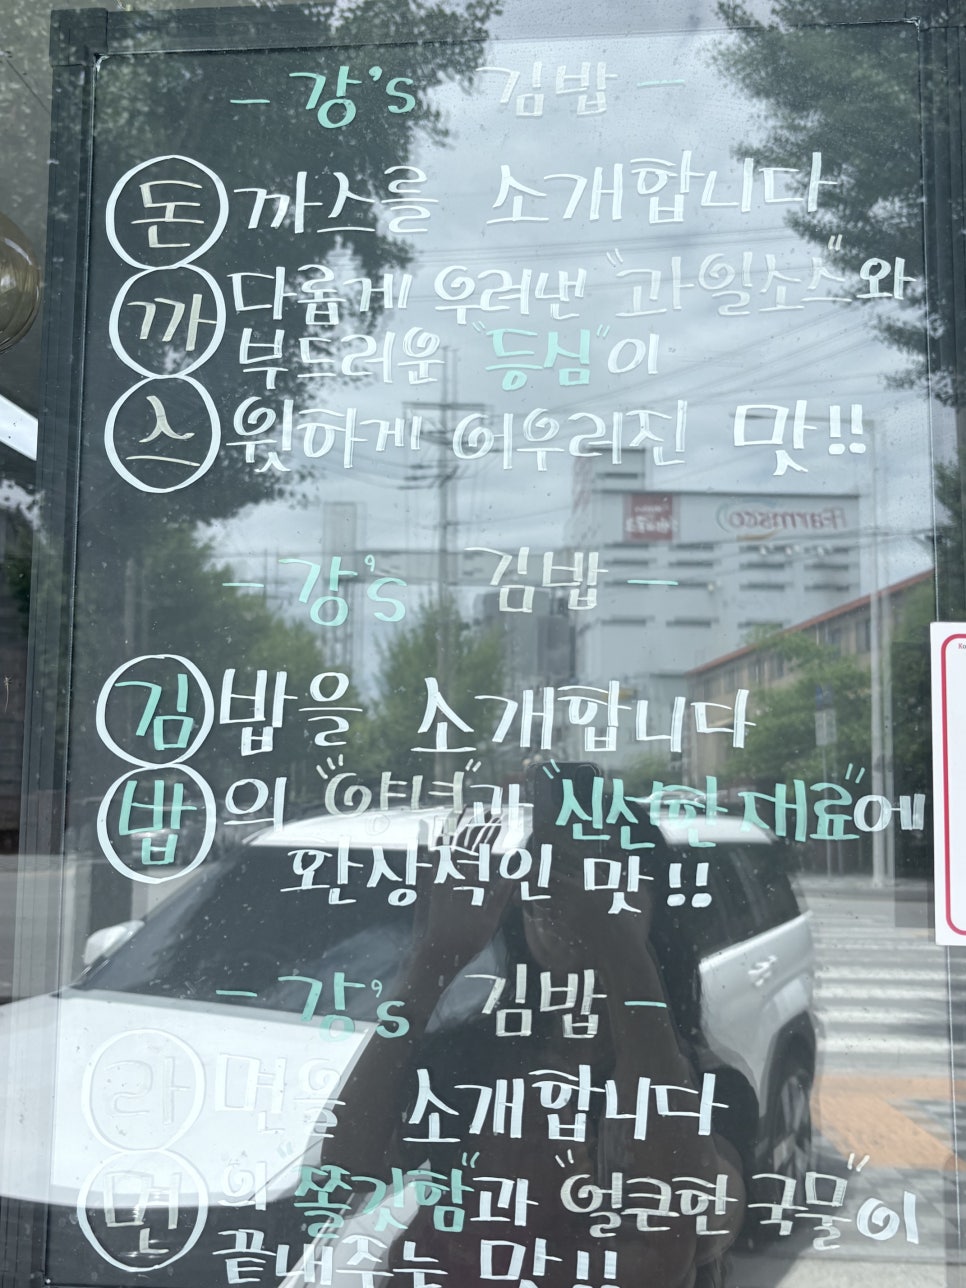 - 강's 김밥 -
돈까스를 소개합니다
까다롭게 우려낸 "과일소스"와
부드러운 "등심"이
스윗하게 어우러진 맛!!
- 강's 김밥 -
김밥을 소개합니다
밥의 "양념"과 "신선한 재료"에
환상적인 맛!!
- 강's 김밥 -
라면을 소개합니다
면의 "쫄깃함"과 "얼큰한 국물"이
끝내주는 맛!!
Farmsco